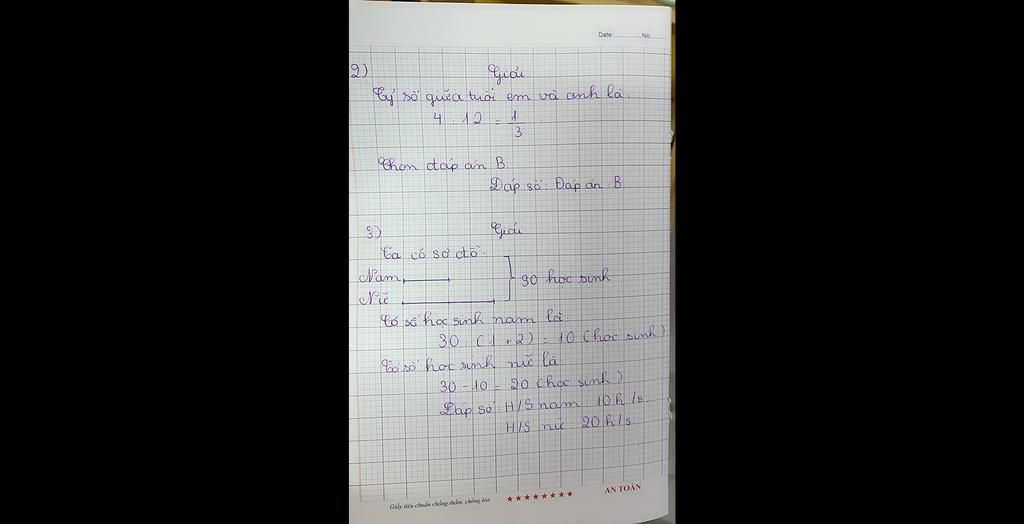 Date: No:
2) Giải
Tỷ số giữa tuổi em và anh là.
4 : 12 = 1/3
Chọn đáp án B
Đáp số: Đáp án B
3) Giải
Ta có sơ đồ:
Nam
30 học sinh
Nữ
Có số học sinh nam là:
30 : (1 + 2) = 10 (học sinh)
Có số học sinh nữ là:
30 - 10 = 20 (học sinh)
Đáp số: H/S nam: 10 h/s.
H/S nữ: 20 h/s.
Giấy tiêu chuẩn chống thấm, chống lóa
AN TOÀN